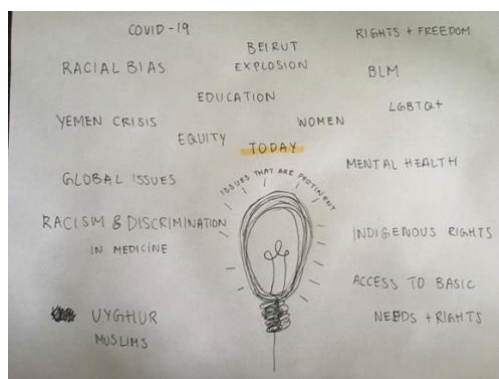 COVID-19
RIGHTS + FREEDOM
BEIRUT
EXPLOSION
RACIAL BIAS
BLM
EDUCATION
LGBTQ+
YEMEN CRISIS
WOMEN
EQUITY
TODAY
MENTAL HEALTH
ISSUES THAT ARE PERTINENT
GLOBAL ISSUES
RACISM & DISCRIMINATION
IN MEDICINE
INDIGENOUS RIGHTS
ACCESS TO BASIC
NEEDS + RIGHTS
UYGHUR
MUSLIMS